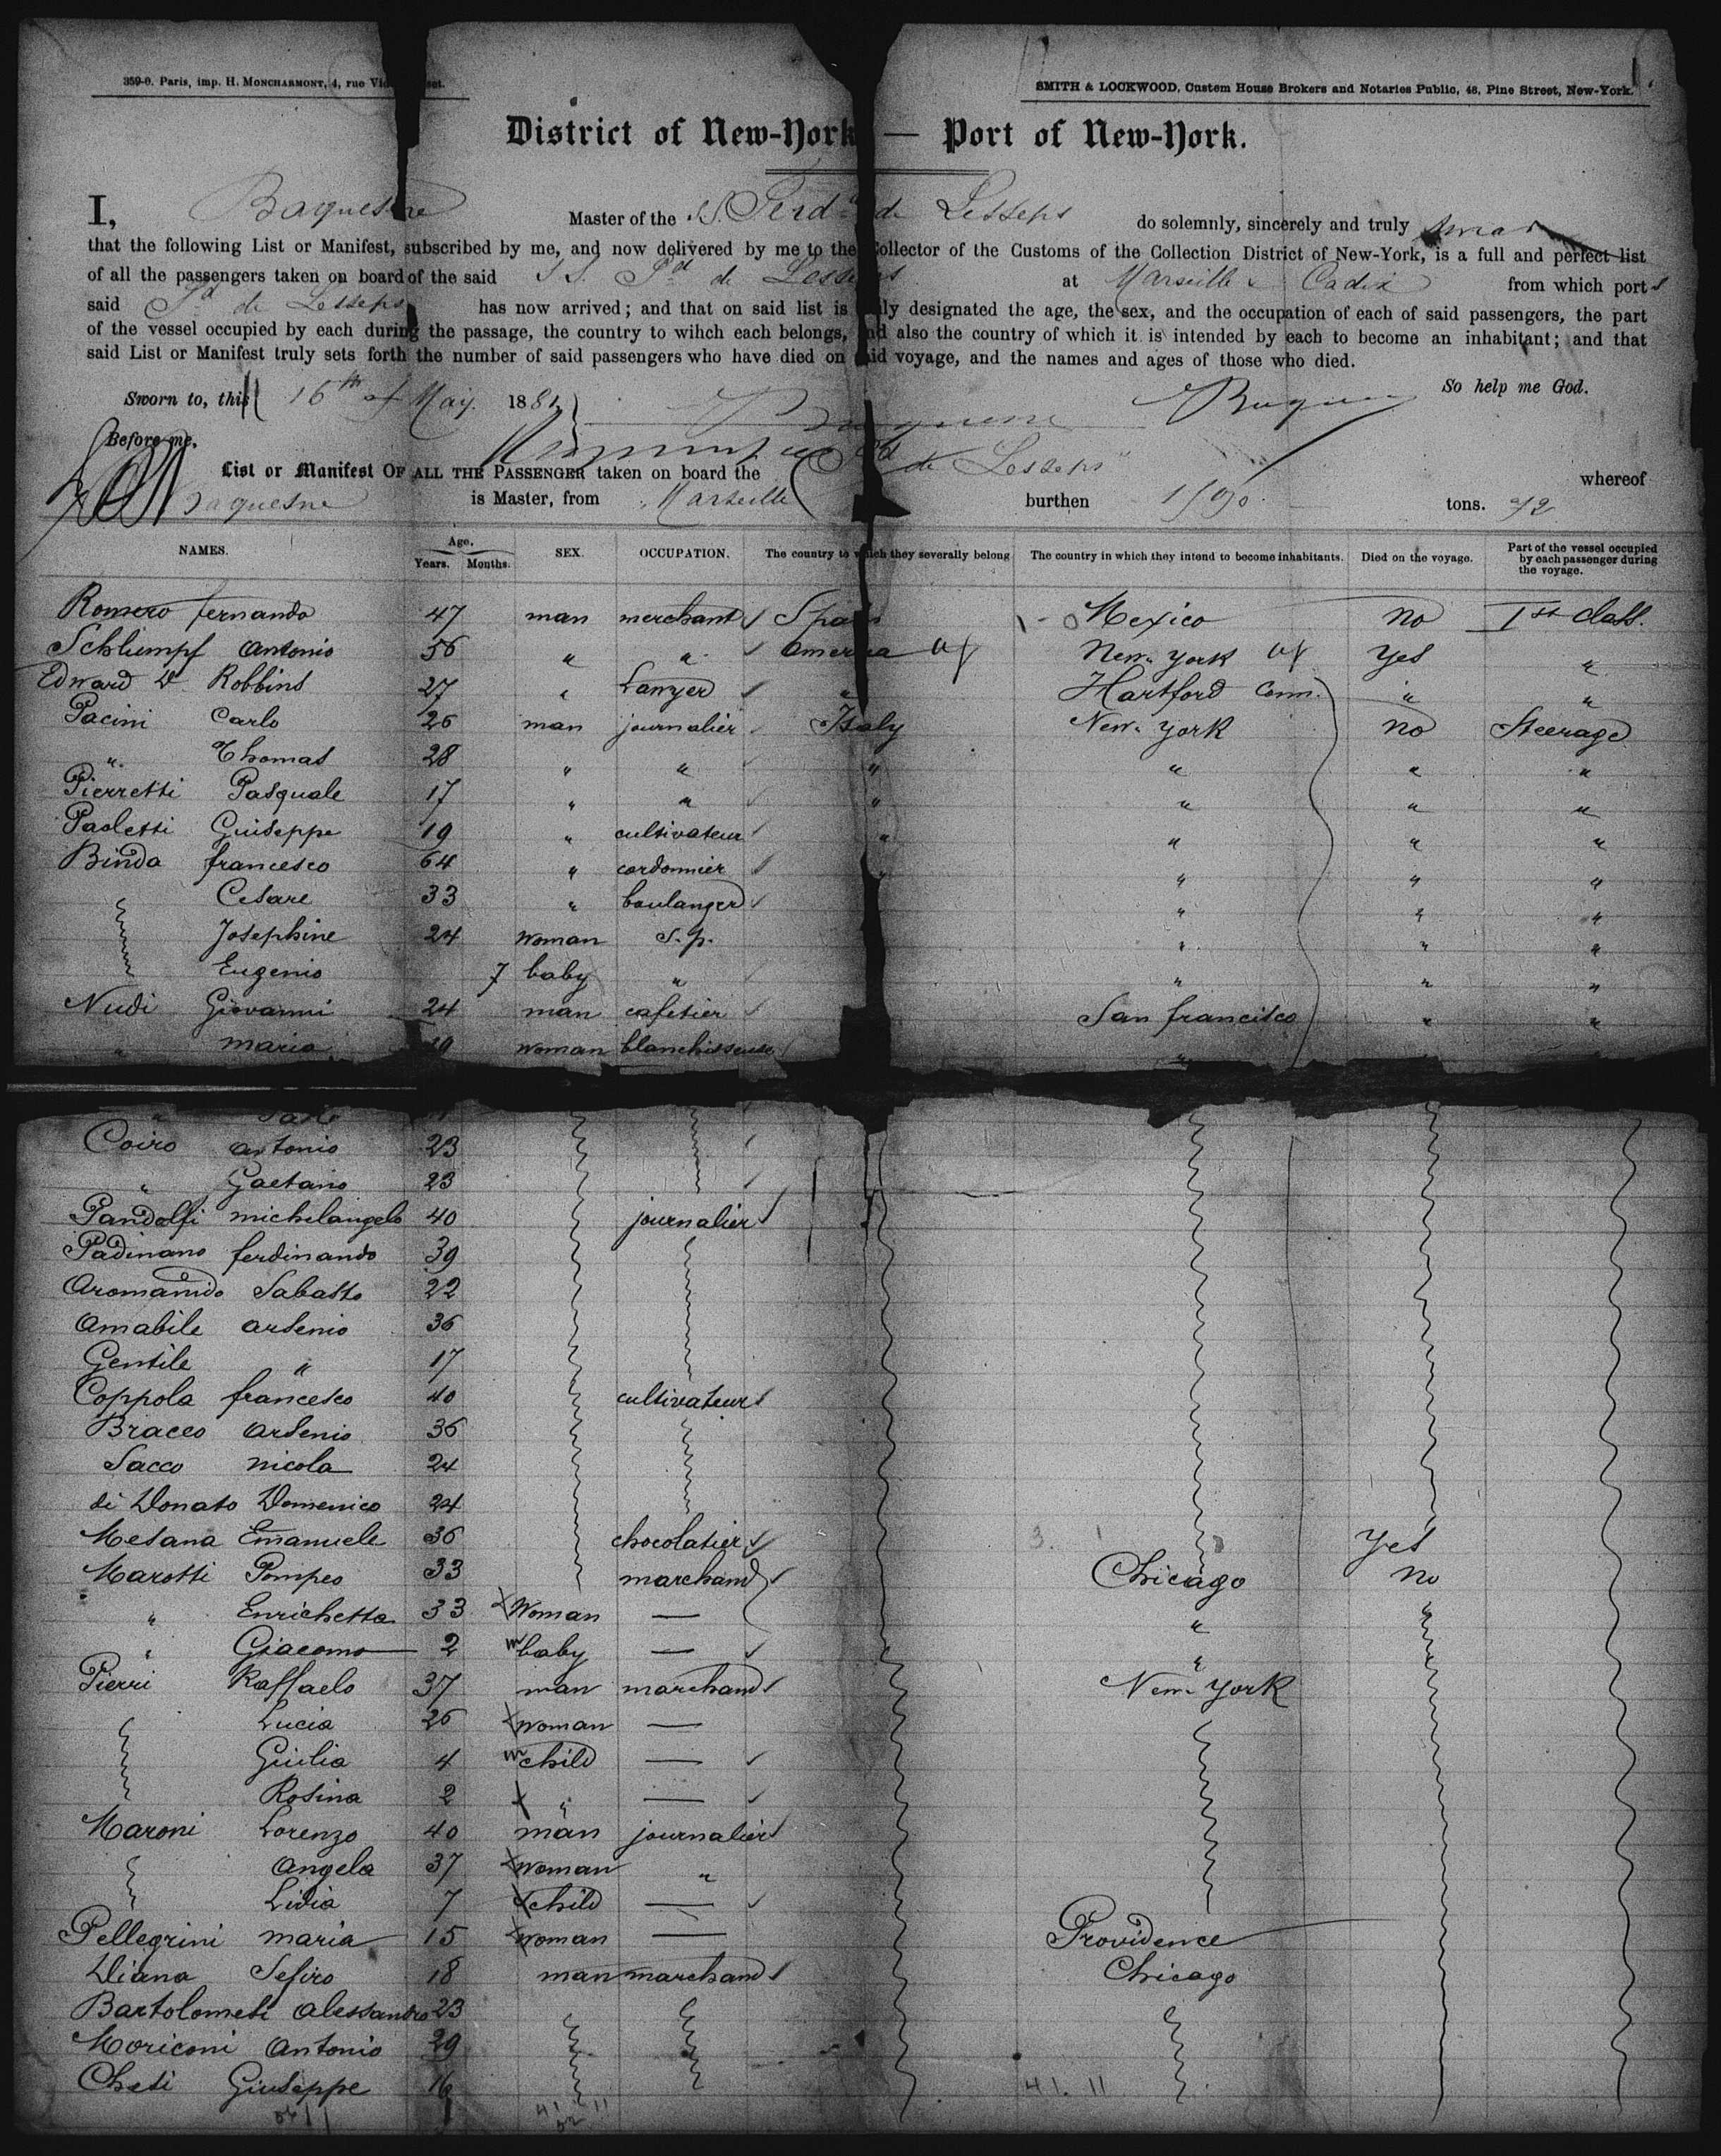 359-0. Paris, imp. H. MONCHARMONT, 4, rue
SMITH & LOCKWOOD, Custom House Brokers and Notaries Public, 48, Pine Street, New-York.
District of New-York — Port of New-York.
I, Baquesne Master of the S.S. Ferd de Lesseps do solemnly, sincerely and truly
that the following List or Manifest, subscribed by me, and now delivered by me to the Collector of the Customs of the Collection District of New-York, is a full and perfect list
of all the passengers taken on board of the said S.S. Fd de Lesseps at Marseille & Cadix from which ports
said Fd de Lesseps has now arrived; and that on said list is truly designated the age, the sex, and the occupation of each of said passengers, the part
of the vessel occupied by each during the passage, the country to wihch each belongs, and also the country of which it is intended by each to become an inhabitant; and that
said List or Manifest truly sets forth the number of said passengers who have died on said voyage, and the names and ages of those who died.
So help me God.
Sworn to, this 16th of May. 1881
Before me,
List or Manifest OF ALL THE PASSENGER taken on board the de Lesseps whereof
Baquesne is Master, from Marseille burthen tons.
NAMES. Age. Years. Months. SEX. OCCUPATION. The country to which they severally belong The country in which they intend to become inhabitants. Died on the voyage. Part of the vessel occupied by each passenger during the voyage.
Romero fernando 47 man merchant Spain Mexico no 1st Class.
Schlumpf antonio 56 " " america New-york yes "
Edward D. Robbins 27 " Lawyer " Hartford Conn. " "
Pacini Carlo 26 man journalier Italy New-york no Steerage
" Thomas 28 " " " " " "
Pierretti Pasquale 17 " " " " " "
Paoletti Guiseppe 19 " cultivateur " " " "
Binda francesco 64 " cordonnier " " " "
Cesare 33 " boulanger " " "
Josephine 24 woman s.p. " " "
Eugenio 7 baby " " " "
Nudi Giovanni 24 man cafetier San francisco " "
" maria 19 woman blanchisseuse "
Coiro antonio 23
" Gaetano 23
Pandolfi michelangelo 40 journalier
Padinano ferdinando 39
Aromando Sabatto 22
amabile arsenio 36
Gentile " 17
Coppola francesco 40 cultivateur
Bracco arsenio 36
Sacco nicola 24
di Donato Domenico 24
Mesana Emanuele 36 chocolatier yes
Marotti Pompeo 33 marchand Chicago no
" Enrichetta 33 Woman — " "
" Giacomo 2 baby — "
Pierri Raffaelo 37 man marchand New-york
Lucia 26 woman —
Giulia 4 child —
Rosina 2 " —
Maroni Lorenzo 40 man journalier
Angela 37 woman "
Livia 7 child —
Pellegrini maria 15 woman — Providence
Diana Sefiro 18 man marchand Chicago
Bartolomeli alessandro 23
Moriconi antonio 29
Chesi Giuseppe 16
41. 11